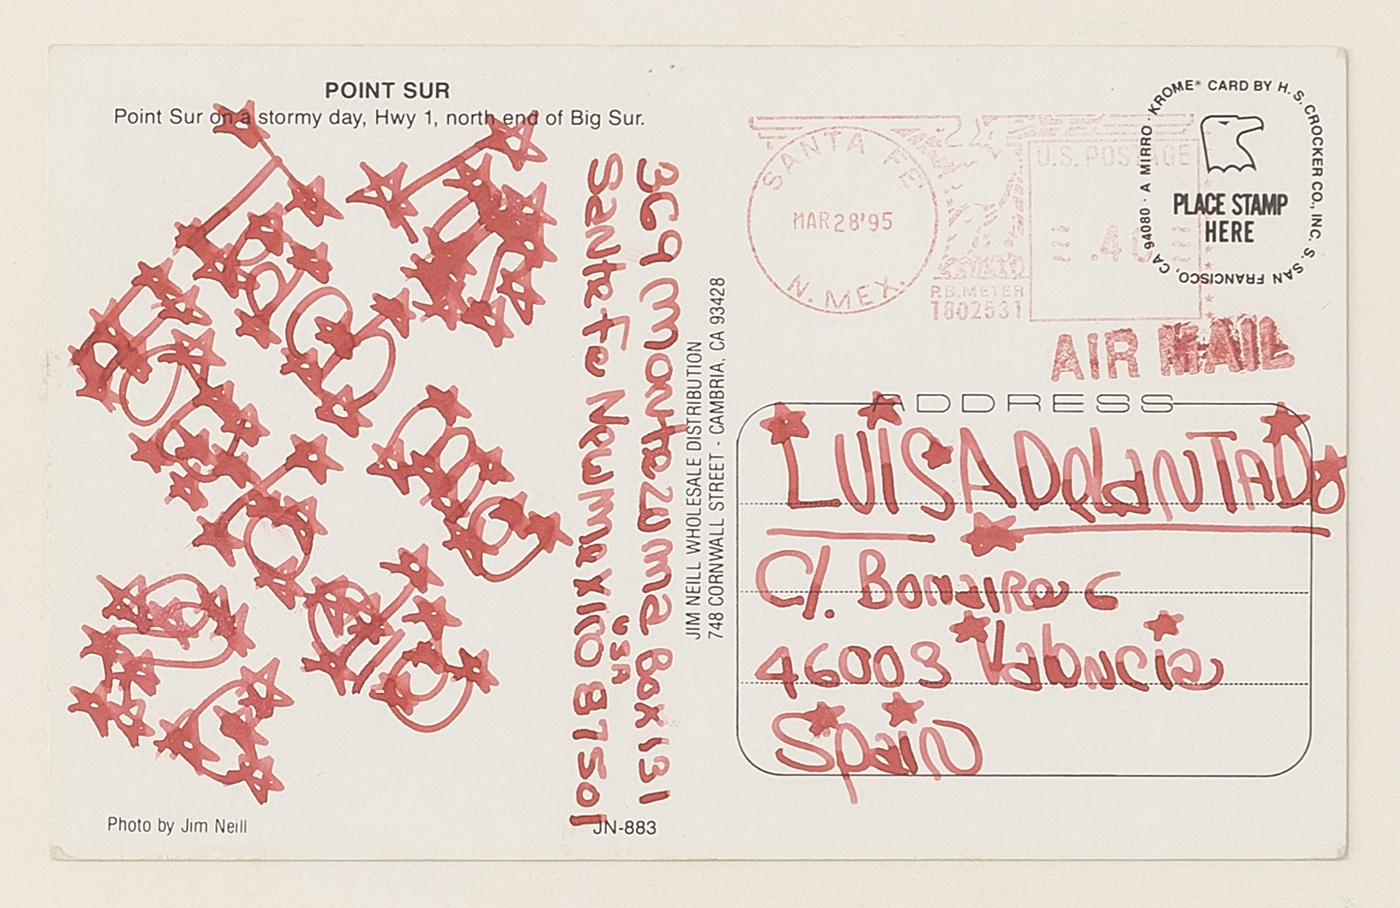 POINT SUR
Point Sur on a stormy day, Hwy 1, north end of Big Sur.
369 Montezuma Box 131
Sante fe New mexico 87501
USA
Photo by Jim Neill
JN-883
JIM NEILL WHOLESALE DISTRIBUTION
748 CORNWALL STREET - CAMBRIA, CA 93428
SANTA FE
MAR 28 '95
N. MEX.
P.B. METER
1802531
U.S. POSTAGE
.40
A MIRRO-KROME® CARD BY H. S. CROCKER CO., INC. S. SAN FRANCISCO, CA 94080
PLACE STAMP
HERE
AIR MAIL
ADDRESS
LUIS ADdlaNTADO
C/. Bonaire 6
46003 Valencia
Spain